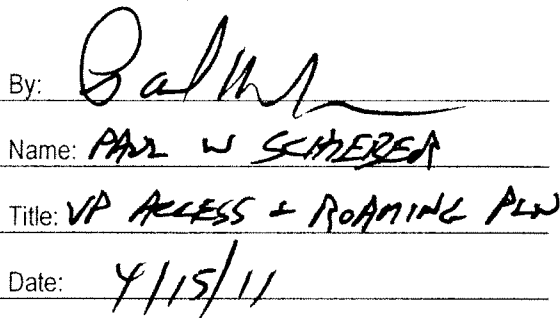 By: Paul W
Name: PAUL W SCHIEBER
Title: VP ACCESS + ROAMING PLN
Date: 4/15/11